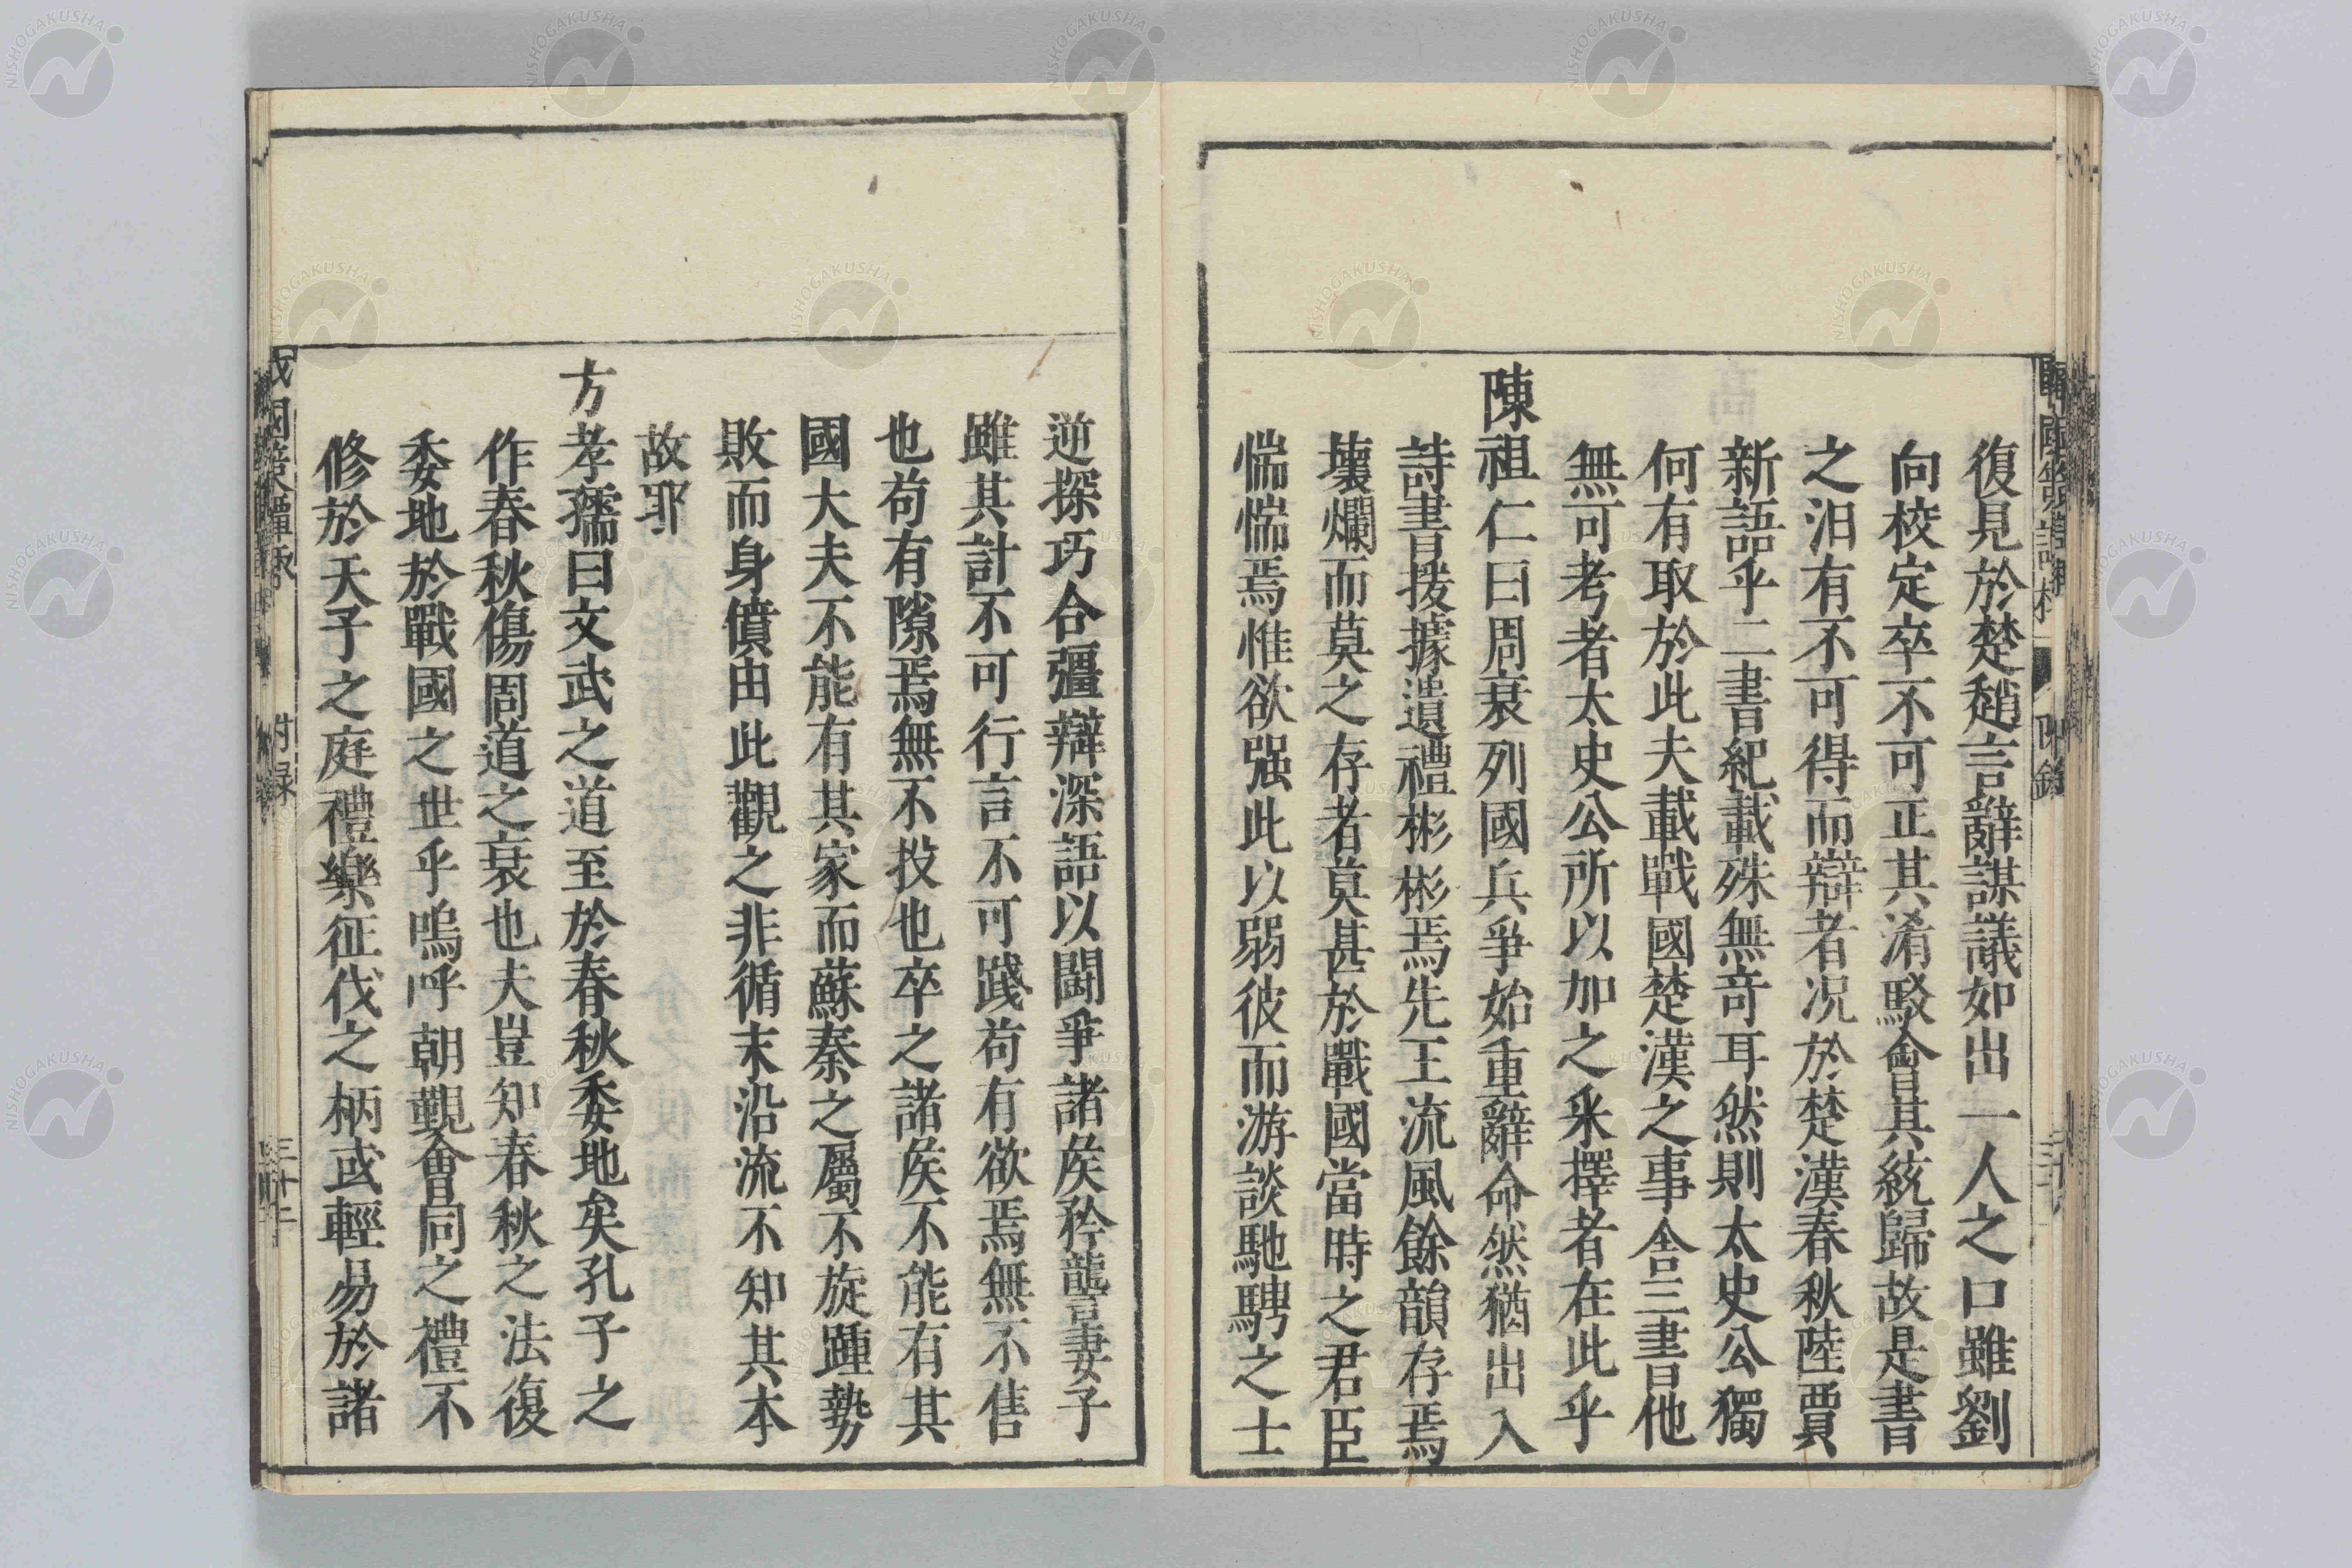 復見於楚趙言辭謀議如出一人之口雖劉
向校定卒不可正其淆駁會其統歸故是書
之汨有不可得而辯者况於楚漢春秋陸賈
新語乎二書紀載殊無竒耳然則太史公獨
何有取於此夫載戰國楚漢之事舍三書他
無可考者太史公所以加之釆擇者在此乎
陳祖仁曰周衰列國兵爭始重辭命然猶出入
詩書援據遺禮彬彬焉先王流風餘韻存焉
壞爛而莫之存者莫甚於戰國當時之君臣
惴惴焉惟欲强此以弱彼而游談馳騁之士
逆探巧合彊辯深語以鬪爭諸矦矜讋妻子
雖其計不可行言不可踐苟有欲焉無不售
也苟有隙焉無不投也卒之諸矦不能有其
國大夫不能有其家而蘇秦之屬不旋踵勢
敗而身僨由此觀之非循末沿流不知其本
故耶
方孝孺曰文武之道至於春秋委地矣孔子之
作春秋傷周道之衰也夫豈知春秋之法復
委地於戰國之世乎嗚呼朝覲會同之禮不
修於天子之庭禮樂征伐之柄或輕易於諸
戰國策譚棷
附録
三十二
NISHOGAKUSHA